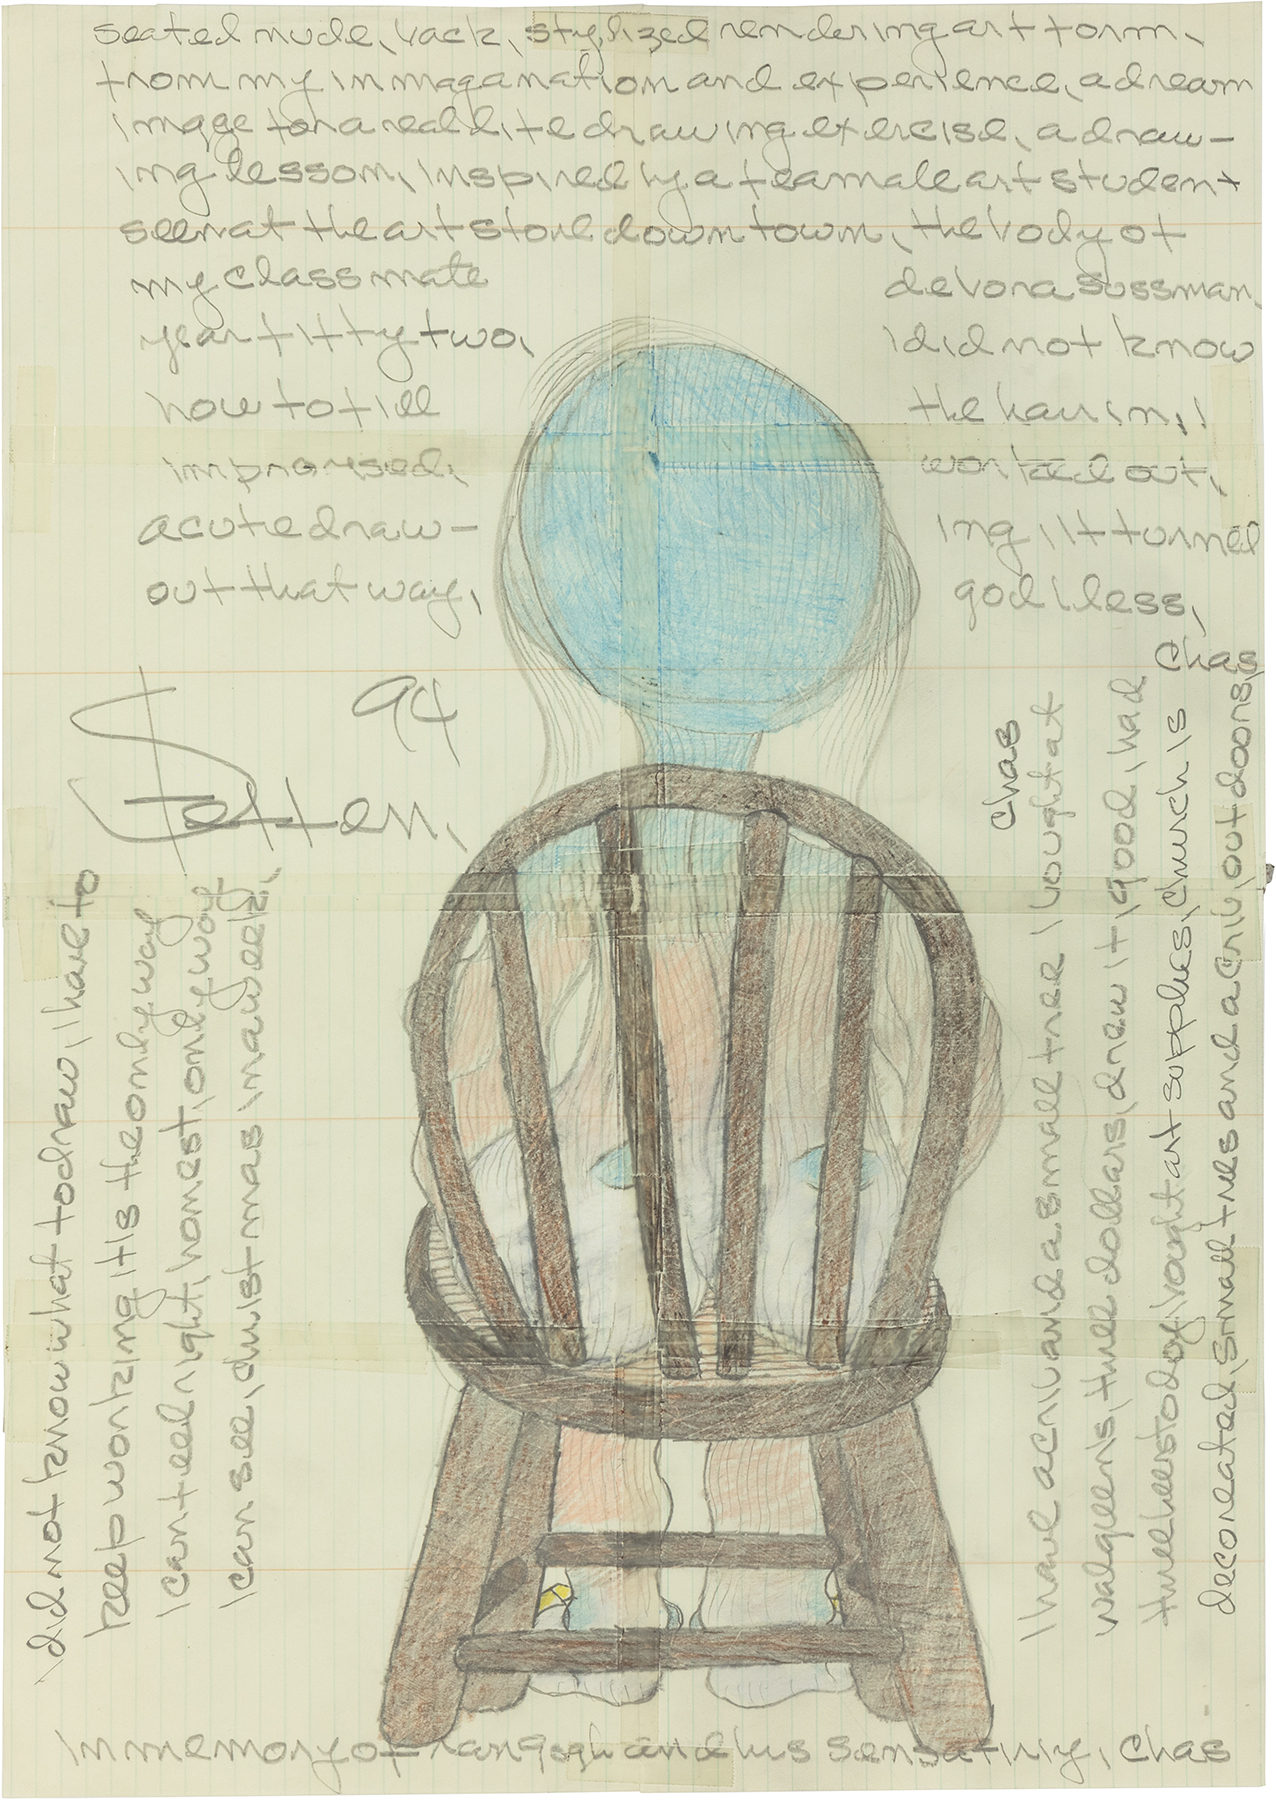 seated nude, back, stylized rendering art form,
from my inmaganation and experience, a dream
image for a real life drawing exercise, a draw-
ing lesson, inspired by a feamale art student
seen at the art store down town, the body of
my classmate devora sussman,
year fifty two, i did not know
how to fill the hair in, i
improvised, worked out,
a cute draw- ing, it turned
out that way, god bless,
Chas
94
Steffen,
i did not know what to draw, i have to
keep working it is the only way
i can feel right, honest, only way
i can see, christmas in a week,
Chas
i have a crib and a small tree i bought at
walgreens, three dollars, drew it, good, had
three beers today, bought art supplies, church is
decorated, small trees and a crib, out doors,
in memory of van gogh and his sensativity, Chas